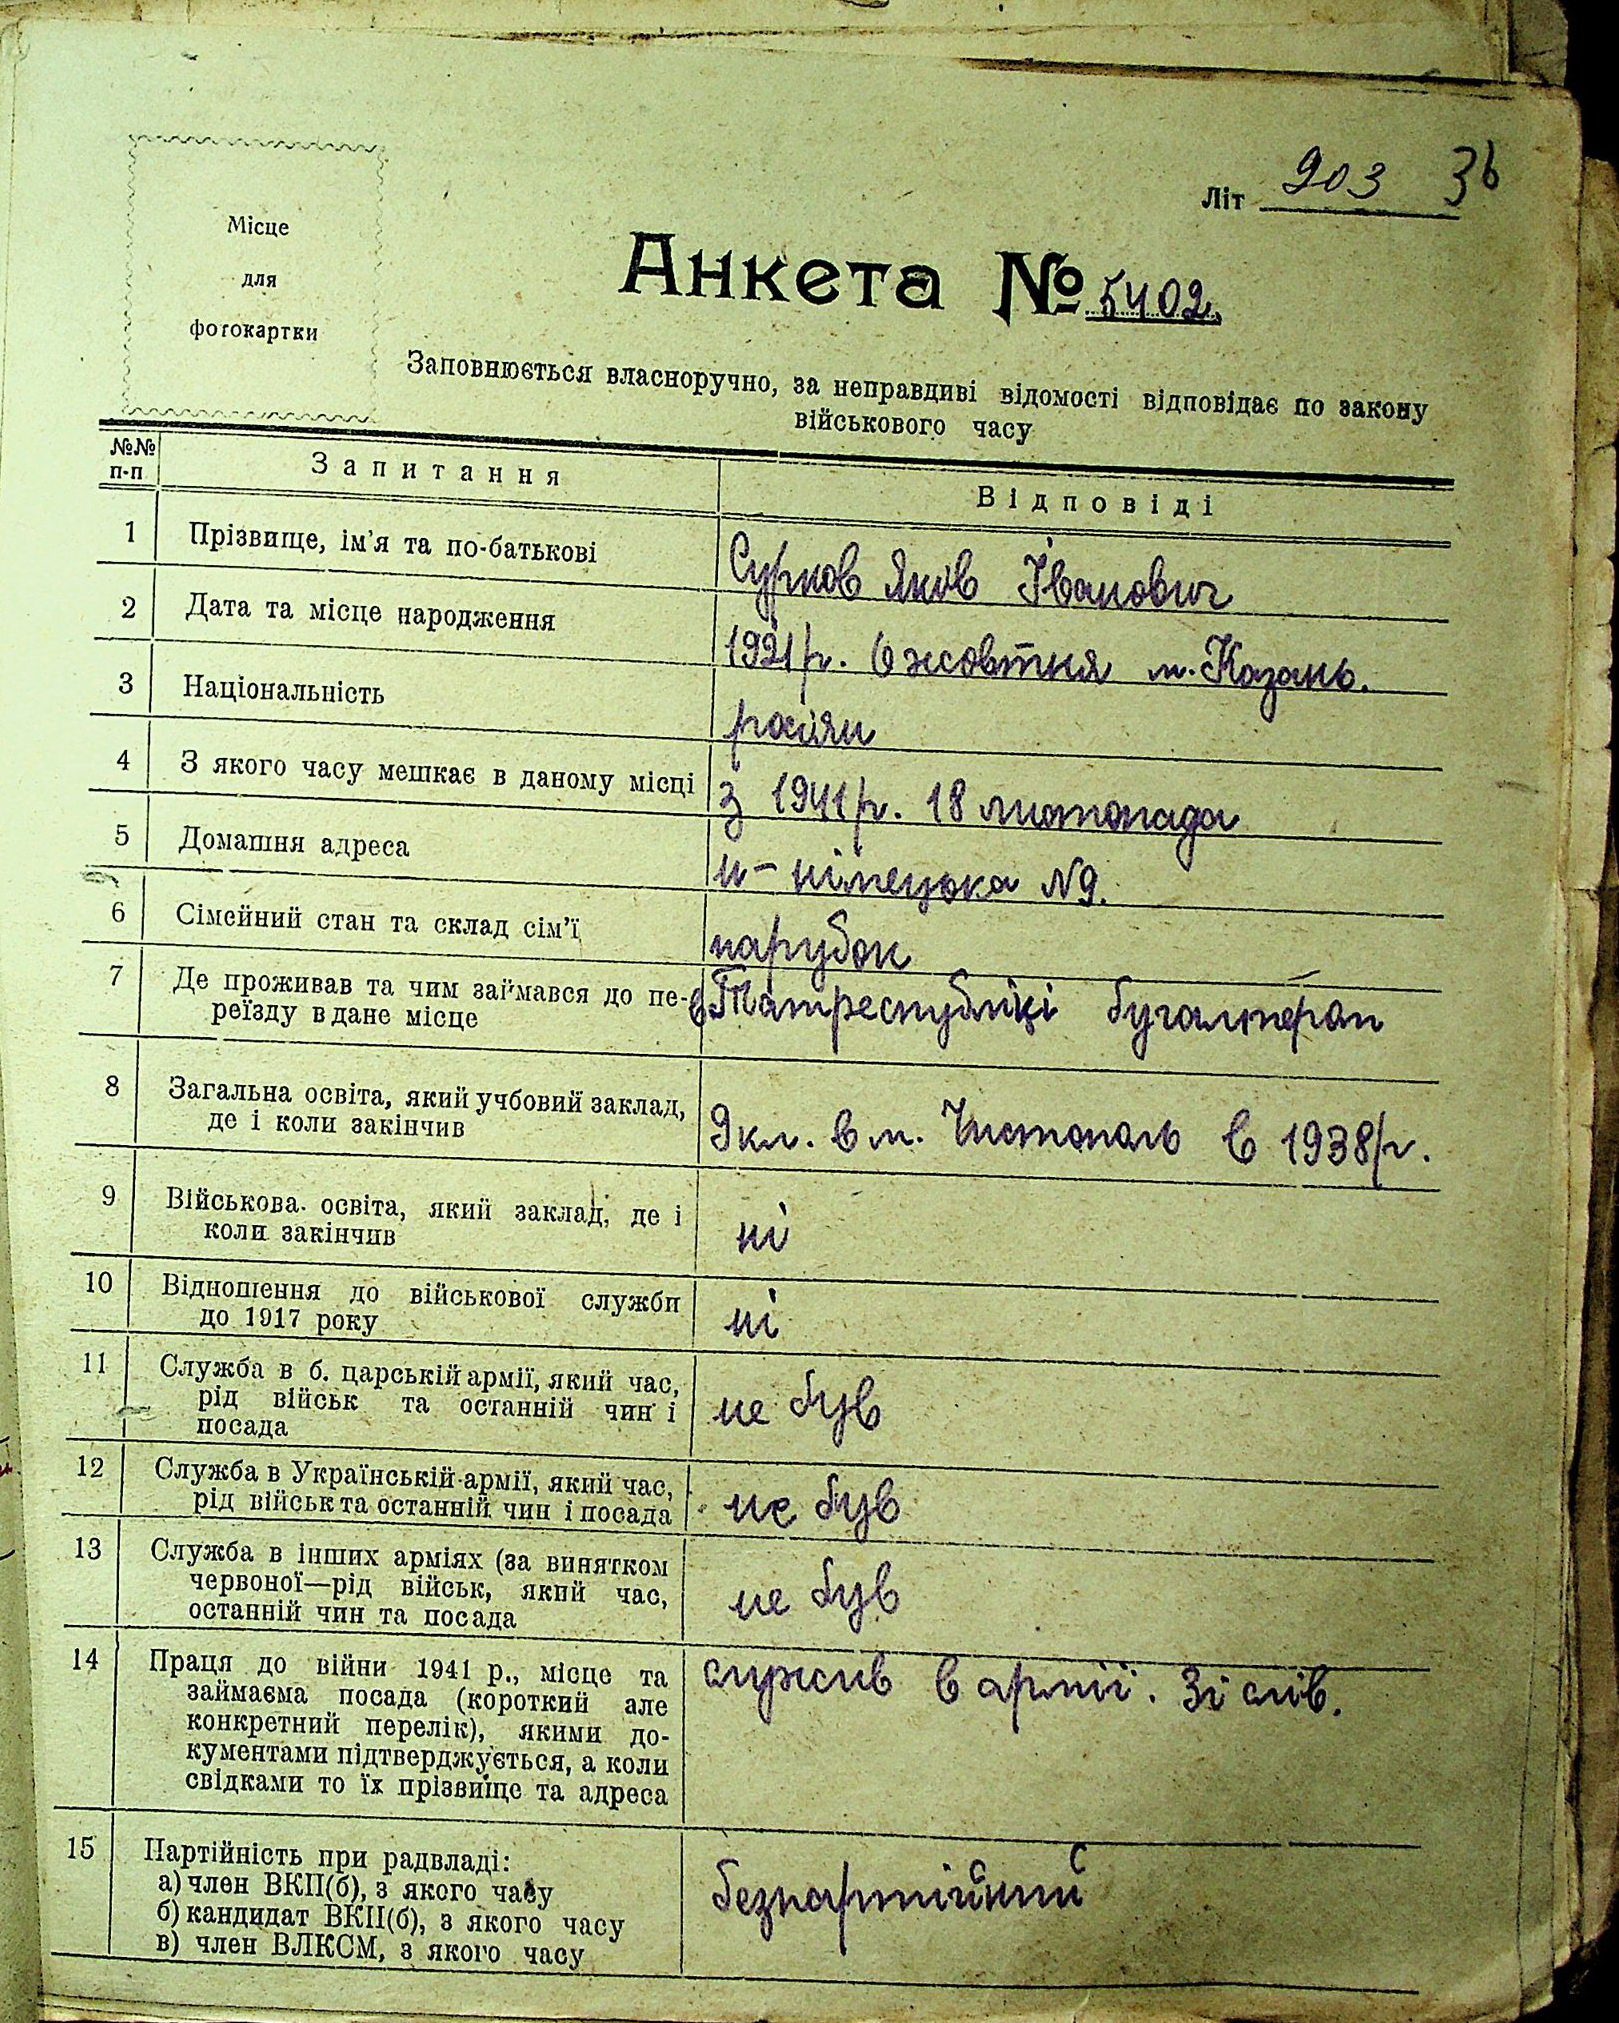 Місце
для
фотокартки
Літ 903 36
Анкета № 5402
Заповнюється власноручно, за неправдиві відомості відповідає по закону
військового часу
№№ п-п Запитання Відповіді
1 Прізвище, ім'я та по-батькові Сурков Яків Іванович
2 Дата та місце народження 1921 р. 6 жовтня м. Казань.
3 Національність росіян
4 З якого часу мешкає в даному місці з 1941 р. 18 листопада
5 Домашня адреса н-німецька №9.
6 Сімейний стан та склад сім'ї парубок
7 Де проживав та чим займався до пе-
реїзду в дане місце в Татреспубліці бугалтером
8 Загальна освіта, який учбовий заклад,
де і коли закінчив 9 кл. в м. Чистополь в 1938 р.
9 Військова освіта, який заклад, де і
коли закінчив ні
10 Відношення до військової служби
до 1917 року ні
11 Служба в б. царській армії, який час,
рід військ та останній чин і
посада не був
12 Служба в Українській армії, який час,
рід військ та останній чин і посада не був
13 Служба в інших арміях (за винятком
червоної—рід військ, який час,
останній чин та посада не був
14 Праця до війни 1941 р., місце та
займаєма посада (короткий але
конкретний перелік), якими до-
кументами підтверджується, а коли
свідками то їх прізвище та адреса служив в армії. Зі слів.
15 Партійність при радвладі:
а) член ВКП(б), з якого часу
б) кандидат ВКП(б), з якого часу
в) член ВЛКСМ, з якого часу безпартійний